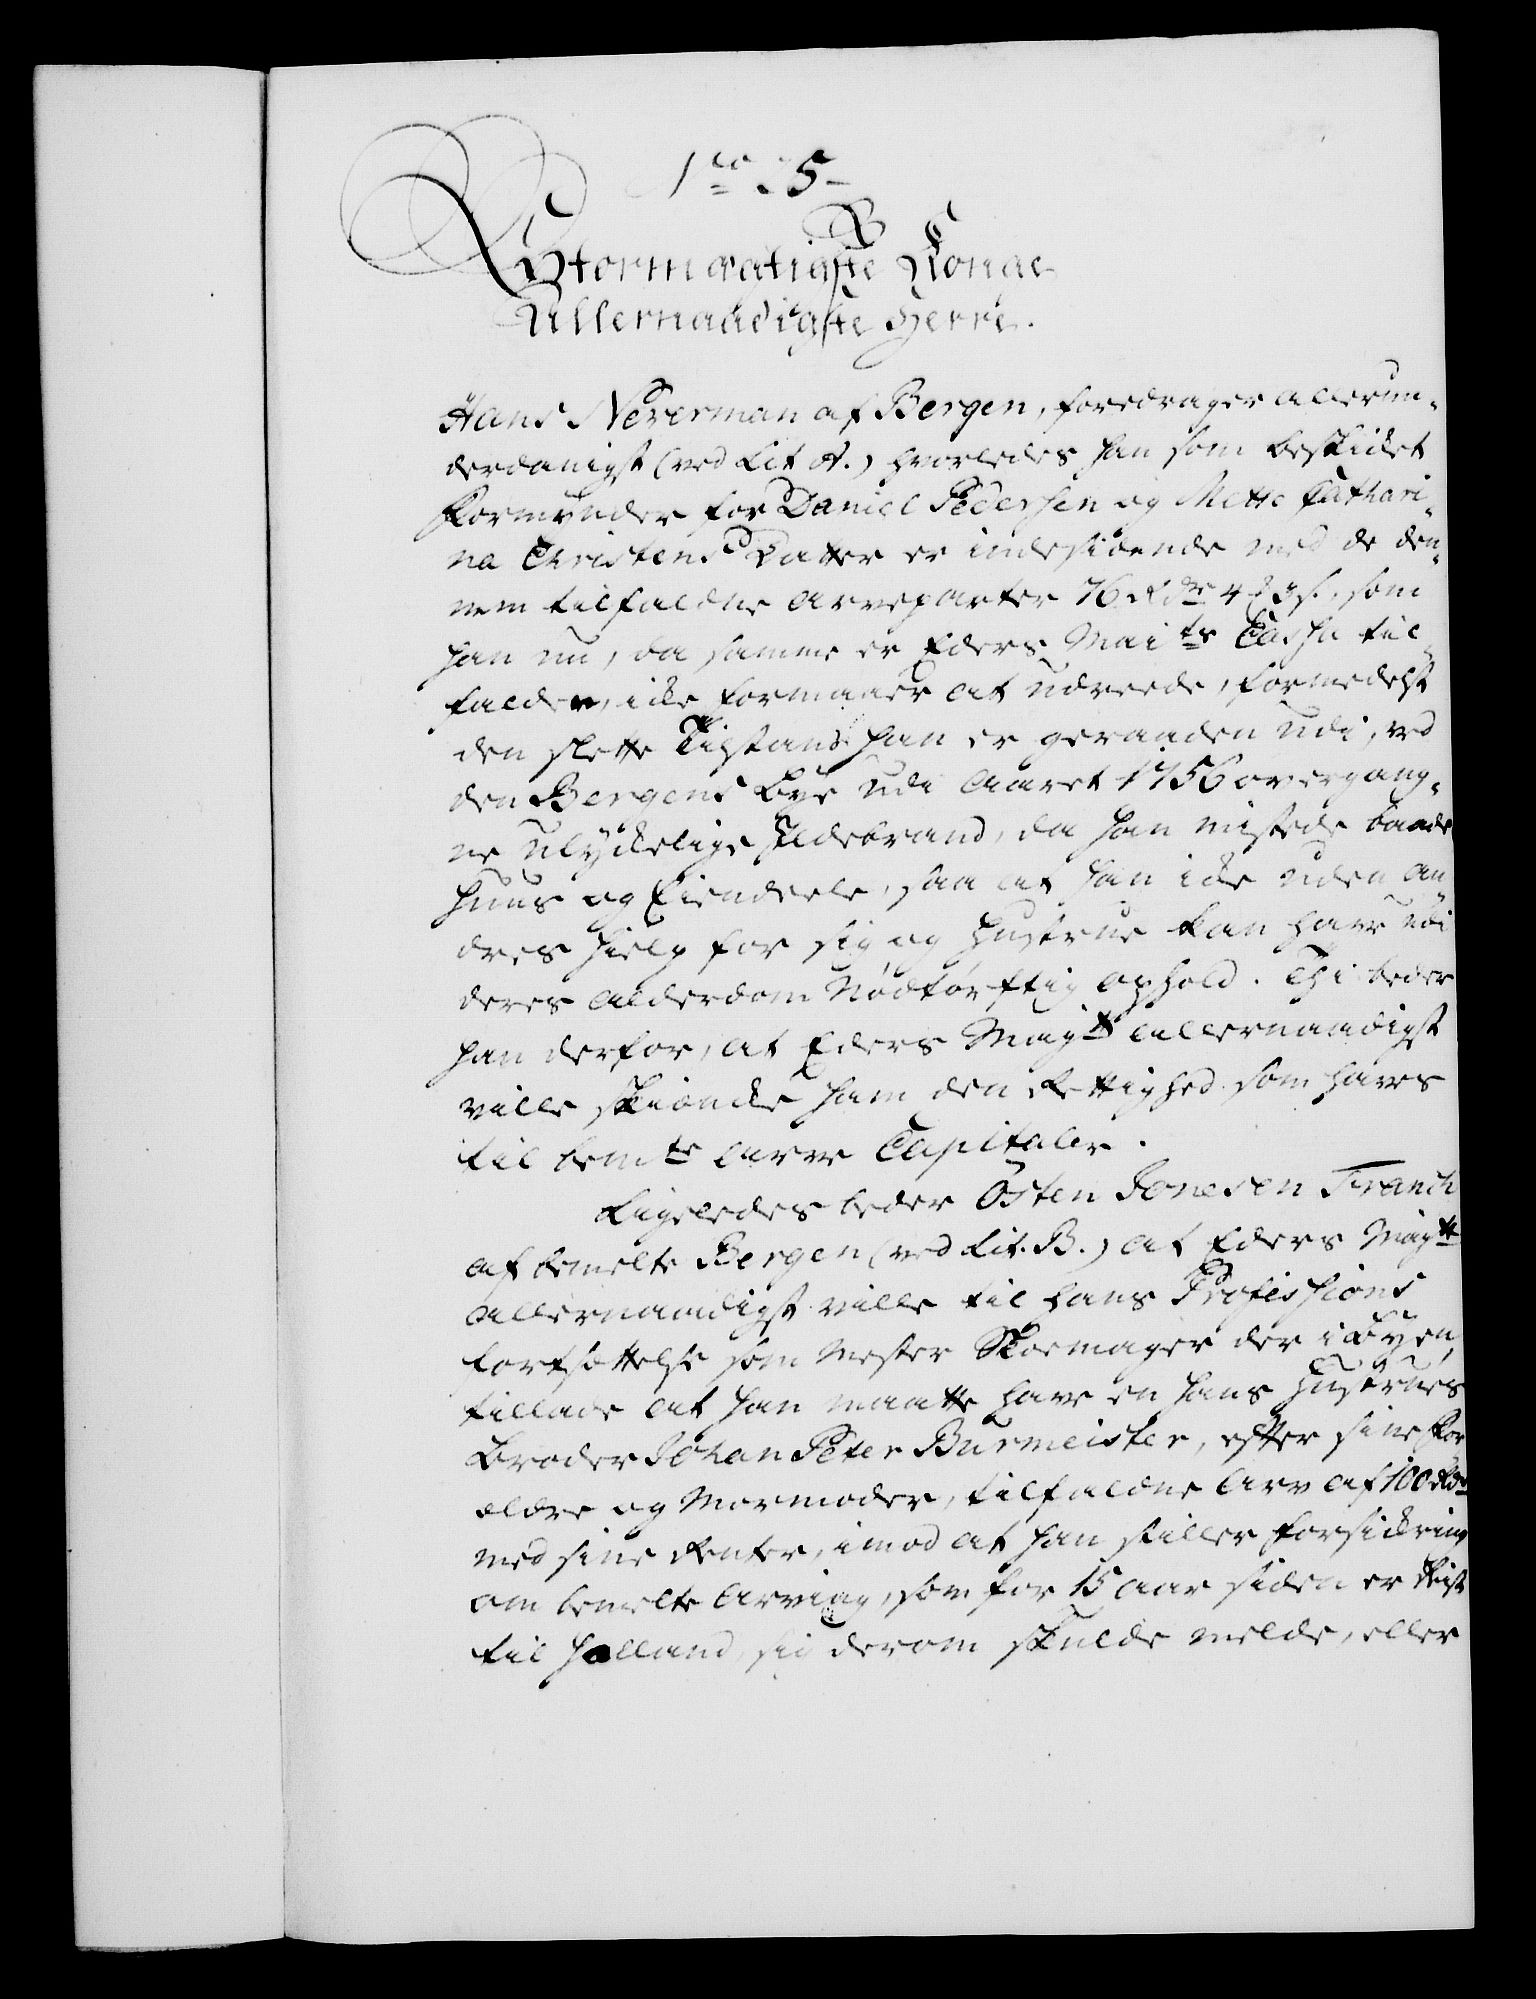 No 25
Stormægtigste Konge
Allernaadigste Herre.
Hans Nererman af Bergen, foredrager allerun-
derdanigst (ved Lit A.) hvorledes han som beskicket
Formynder for Daniel Pedersen og Mette Cathari-
na Christens Datter er indestaaende med de den-
nem tilfaldne arveparter 76 Rdr 4 # 3 s., som
han nu, da samme er Eders Maits Cassa til-
falden, icke formaaer at udreede, formedelst
den slette Tilstand han er geraaden udi, ved
den Bergens Bye udi Aaret 1756 overgang-
ne ulyckelige Ildebrand, da han mistede baade
Huus og Eiendeele, saa at han icke uden an-
dres hielp for sig og Hustrue kan have udi
deres alderdom Nødtørftig ophold. Thi beder
han derfor, at Eders Maytt allernaadigst
ville skiencke ham den Rettighed som haves
til bemte arve Capitaler.
Ligeledes beder Østen Jonesen Franck
af bemelte Bergen (ved Lit. B.) at Eders Maytt
allernaadigst ville til hans Professions
fortsættelse som Mester Skoemager der i Byen,
tillade at han maatte have en hans Hustrues
Broder Johan Peter Burmeister, efter sine For
ældre og Mormoder, tilfaldne Arv af 100 Rdr
med sine Renter, imod at han stiller forsickring
om bemelte Arving, som for 15 aar siden er Reist
til Holland, sig derom skulde melde, eller